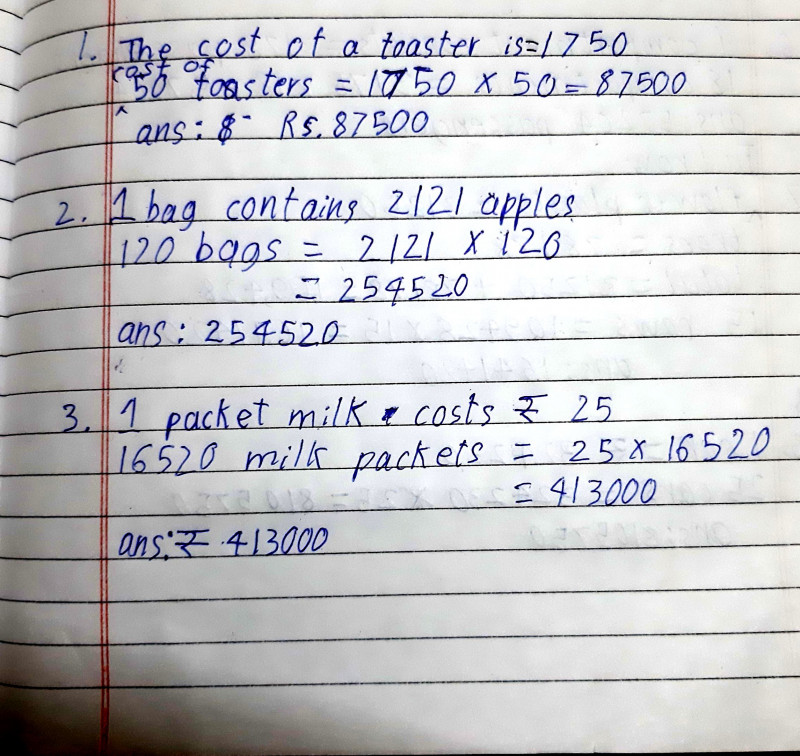 1. The cost of a toaster is=1750
cost of
50 toasters = 1750 x 50 = 87500
ans: $ - Rs. 87500
2. 1 bag contains 2121 apples
120 bags = 2121 x 120
= 254520
ans: 254520
3. 1 packet milk costs ₹ 25
16520 milk packets = 25 x 16520
= 413000
ans: ₹ 413000